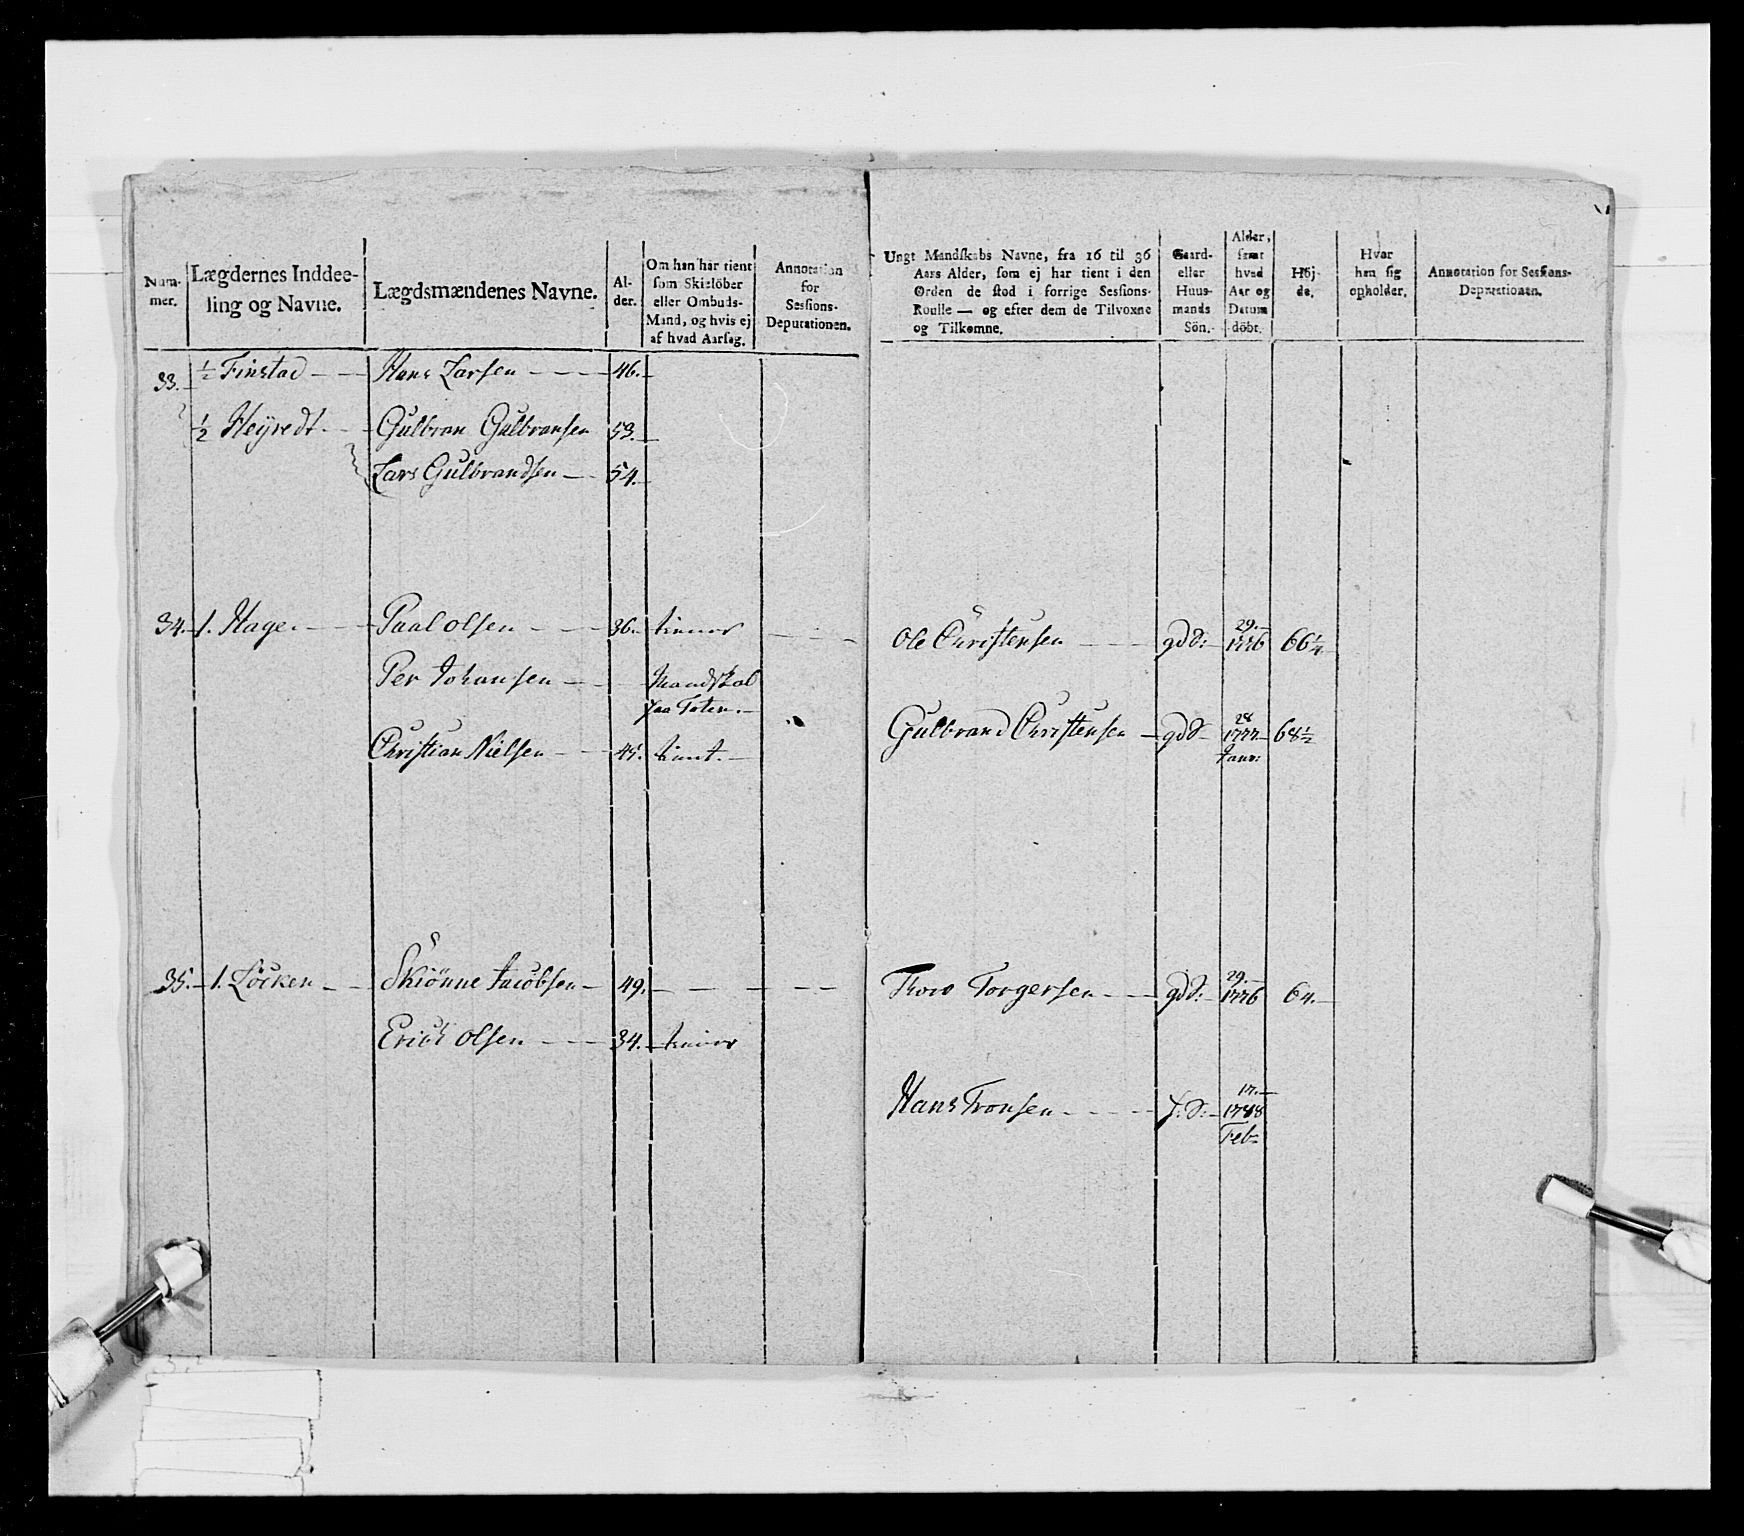 Num-
mer.
Lægdernes Inddee-
ling og Navne.
Lægdsmændenes Navne.
Al-
der.
Om han har tient
som Skieløber
eller Ombuds-
Mand, og hvis ej
af hvad Aarsag.
Annotation
for
Sessions-
Deputationen.
Ungt Mandskabs Navne, fra 16 til 36
Aars Alder, som ej har tient i den
Orden de stod i forrige Sessions-
Roulle — og efter dem de Tilvoxne
og Tilkomne.
Gaard-
eller
Huus-
mands
Sön.
Alder,
samt
hvad
Aar og
Datum
döbt.
Höj-
de.
Hvor
han sig
opholder.
Annotation for Sessions-
Deputationen.
33. ½ Finstad — Hans Larsen — 46.
½ Heÿredt. — Gulbran Gulbransen 53.
Lars Gulbrandsen — 54.
34. 1. Hagen — Paal Olsen — 36. tienner
Ole Christensen — gd S: 29. 1776 66¼
Per Johansen — Mandskab
paa Toten.
Gulbrand Christensen — gd S 28 1777 Janr: 68½
Christian Nielsen — 45. tient.
35. 1. Löcken — Skiönne Jacobsen — 49.
Torgersen — gd S: 29. 1776 64.
Erich Olsen — 34. tienner
Hans Tronsen — S: 17. 1788 Feb: